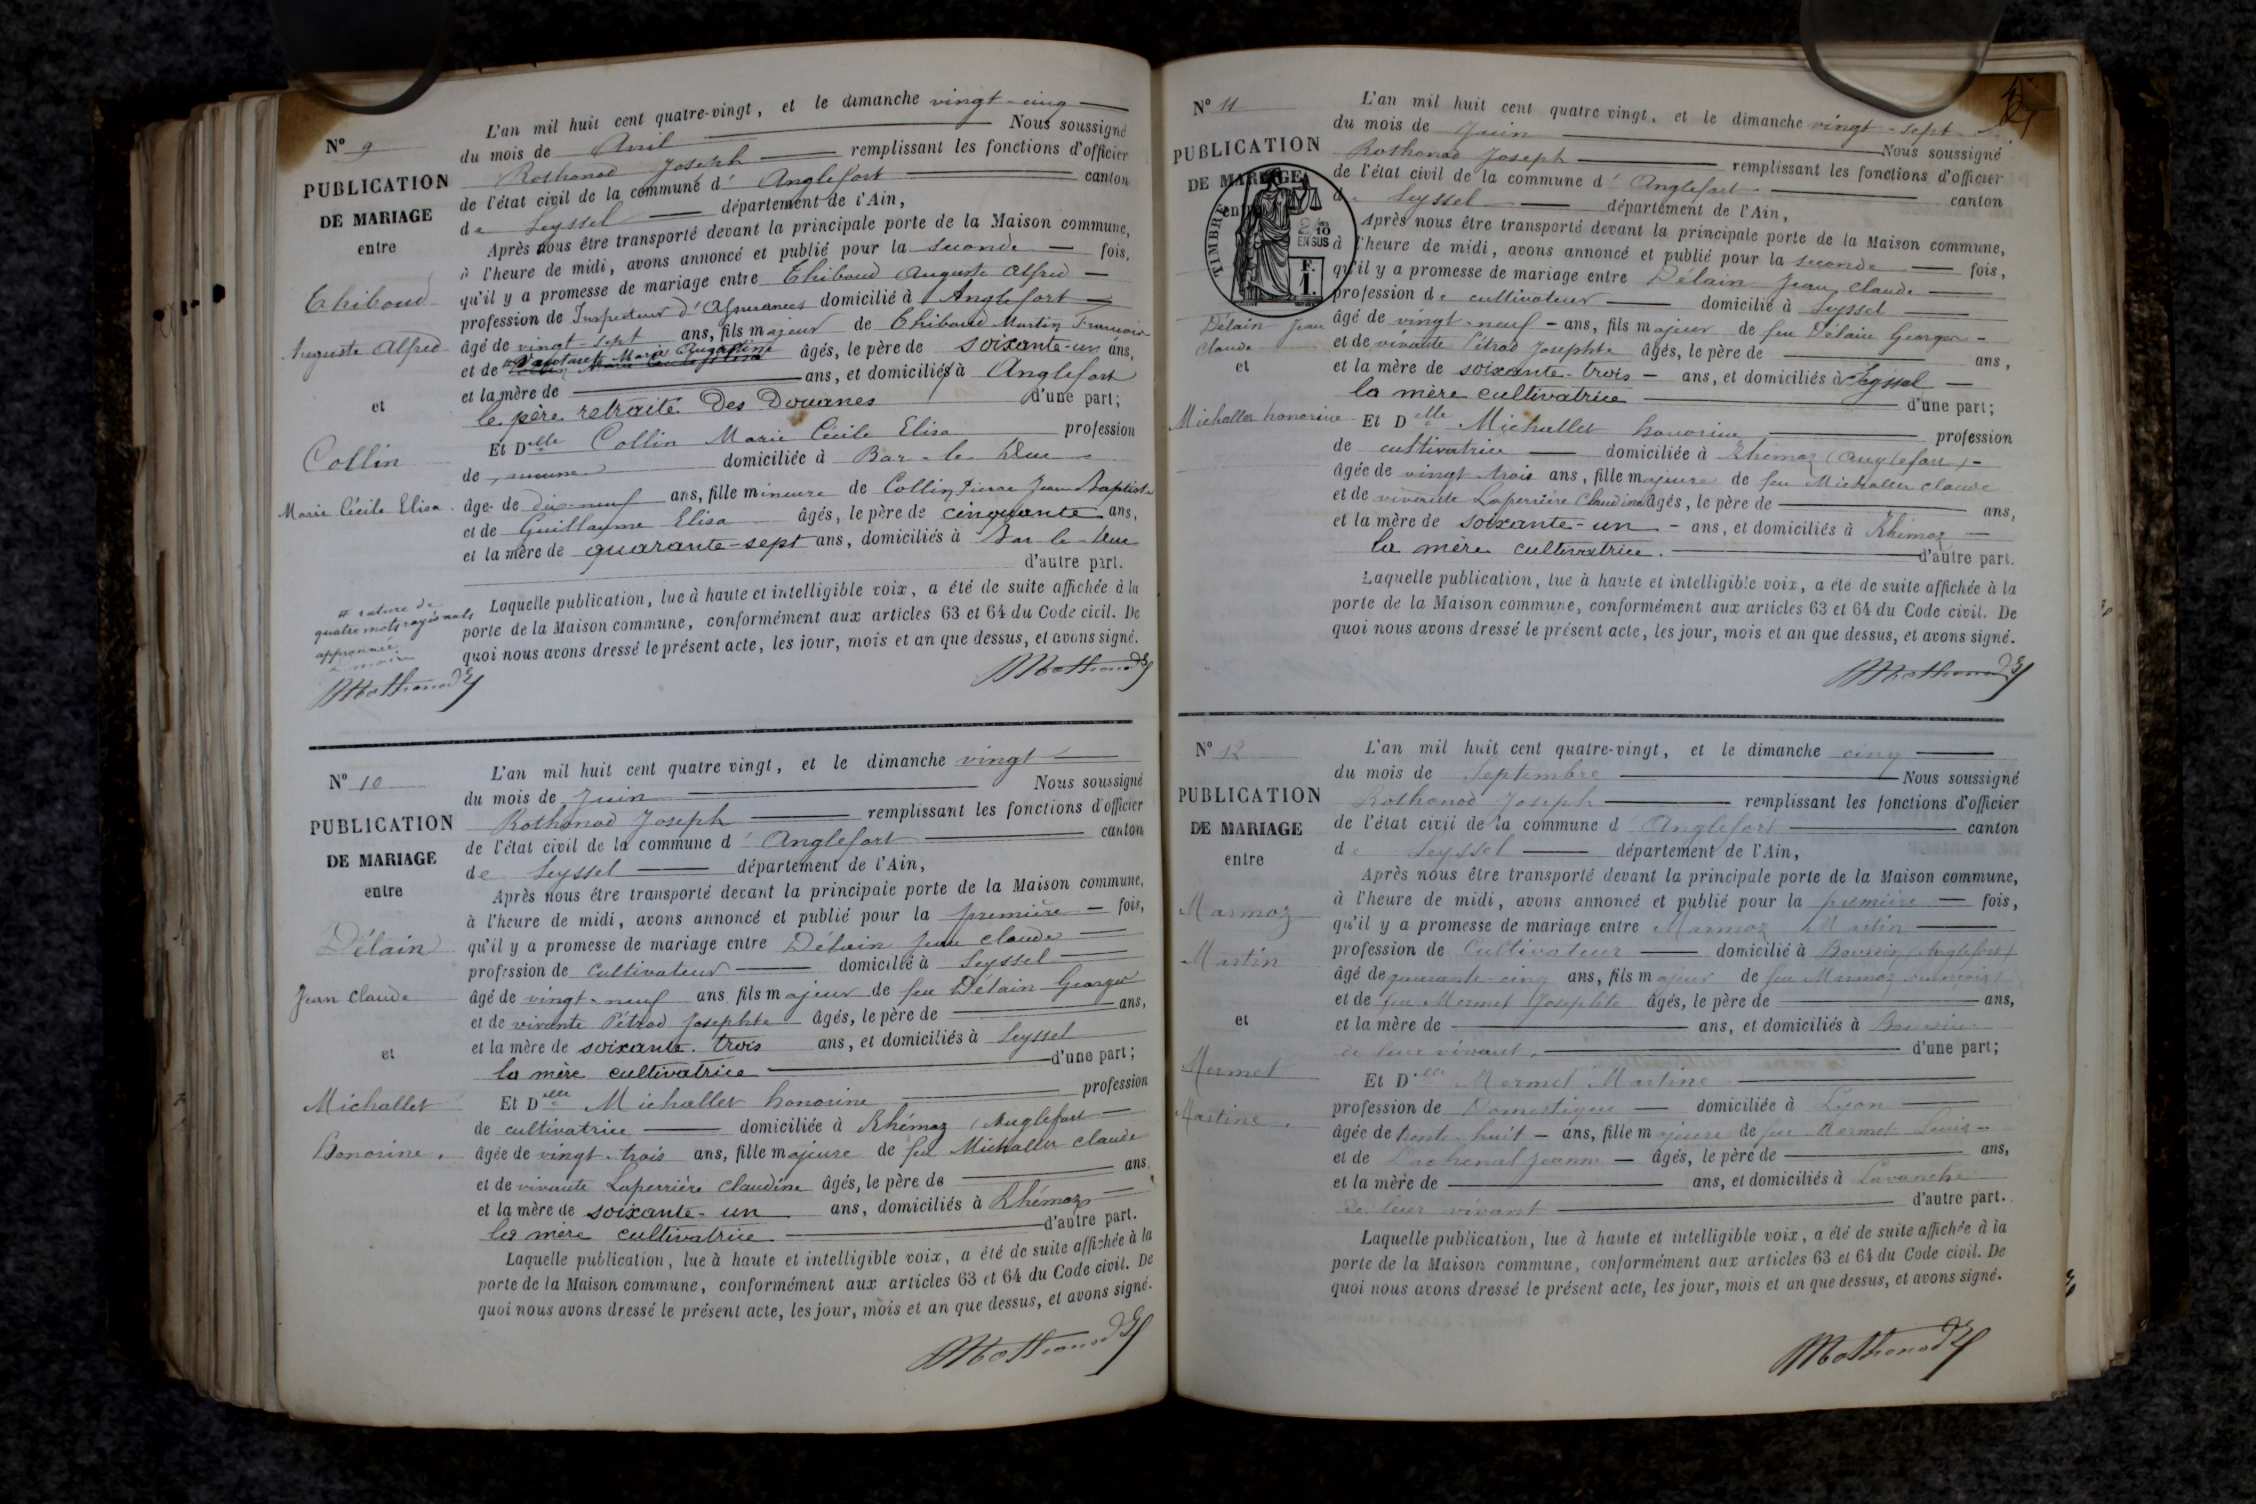 Nº 9
PUBLICATION
DE MARIAGE
entre
Thiboud
Auguste Alfred
et
Collin
Marie Cécile Elisa
L'an mil huit cent quatre-vingt, et le dimanche vingt-cinq
du mois de Avril Nous soussigné
Rothonod Joseph remplissant les fonctions d'officier
de l'état civil de la commune d' Anglefort canton
de Seyssel département de l'Ain,
Après nous être transporté devant la principale porte de la Maison commune,
à l'heure de midi, avons annoncé et publié pour la seconde fois,
qu'il y a promesse de mariage entre Thiboud Auguste Alfred
profession de Inspecteur d'Assurances domicilié à Anglefort
âgé de vingt-sept ans, fils majeur de Thiboud Martin François
et de Marie Augustine âgés, le père de soixante-un ans,
et la mère de ans, et domiciliés à Anglefort
le père retraité Des Douanes d'une part;
Et Delle Collin Marie Cécile Elisa profession
de aucune domiciliée à Bar-le-Duc
âgée de dix-neuf ans, fille mineure de Collin Pierre Jean Baptiste
et de Guillaume Elisa âgés, le père de cinquante ans,
et la mère de quarante-sept ans, domiciliés à Bar-le-Duc
d'autre part.
Laquelle publication, lue à haute et intelligible voix, a été de suite affichée à la
porte de la Maison commune, conformément aux articles 63 et 64 du Code civil. De
quoi nous avons dressé le présent acte, les jour, mois et an que dessus, et avons signé.
# rature de
quatre mots rayés nuls
approuvée
Rothonod
Rothonod
Nº 10
PUBLICATION
DE MARIAGE
entre
Délain
Jean Claude
et
Michallet
Honorine.
L'an mil huit cent quatre vingt, et le dimanche vingt
du mois de Juin Nous soussigné
Rothonod Joseph remplissant les fonctions d'officier
de l'état civil de la commune d' Anglefort canton
de Seyssel département de l'Ain,
Après nous être transporté devant la principale porte de la Maison commune,
à l'heure de midi, avons annoncé et publié pour la première fois,
qu'il y a promesse de mariage entre Délain Jean Claude
profession de Cultivateur domicilié à Seyssel
âgé de vingt-neuf ans fils majeur de feu Délain George
et de vivante Pétrod Josephte âgés, le père de ans,
et la mère de soixante-trois ans, et domiciliés à Seyssel
la mère cultivatrice d'une part;
Et Delle Michallet honorine profession
de cultivatrice domiciliée à Rhémoz (Anglefort
âgée de vingt-trois ans, fille majeure de feu Michallet Claude
et de vivante Laperrière Claudine âgés, le père de ans
et la mère de soixante-un ans, domiciliés à Rhémoz
la mère cultivatrice d'autre part.
Laquelle publication, lue à haute et intelligible voix, a été de suite affichée à la
porte de la Maison commune, conformément aux articles 63 et 64 du Code civil. De
quoi nous avons dressé le présent acte, les jour, mois et an que dessus, et avons signé.
Rothonod
Nº 11
PUBLICATION
DE MARIAGE
entre
TIMBRE
2/10
EN SUS
F.
1.
Délain Jean
Claude
et
Michallet honorine
L'an mil huit cent quatre vingt, et le dimanche vingt-sept
du mois de Juin Nous soussigné
Rothonod Joseph remplissant les fonctions d'officier
de l'état civil de la commune d' Anglefort canton
de Seyssel département de l'Ain,
Après nous être transporté devant la principale porte de la Maison commune,
à l'heure de midi, avons annoncé et publié pour la seconde fois,
qu'il y a promesse de mariage entre Délain Jean Claude
profession de cultivateur domicilié à Seyssel
âgé de vingt-neuf ans, fils majeur de feu Délain George
et de vivante Pétrod Josephte âgés, le père de ans,
et la mère de soixante-trois ans, et domiciliés à Seyssel
la mère cultivatrice d'une part;
Et Delle Michallet honorine profession
de cultivatrice domiciliée à Rhémoz (Anglefort)
âgée de vingt-trois ans, fille majeure de feu Michallet Claude
et de vivante Laperrière Claudine âgés, le père de ans,
et la mère de soixante-un ans, et domiciliés à Rhémoz
la mère cultivatrice. d'autre part.
Laquelle publication, lue à haute et intelligible voix, a été de suite affichée à la
porte de la Maison commune, conformément aux articles 63 et 64 du Code civil. De
quoi nous avons dressé le présent acte, les jour, mois et an que dessus, et avons signé.
Rothonod
Nº 12
PUBLICATION
DE MARIAGE
entre
Marmoz
Martin
et
Mermet
Martine.
L'an mil huit cent quatre-vingt, et le dimanche cinq
du mois de Septembre Nous soussigné
Rothonod Joseph remplissant les fonctions d'officier
de l'état civil de la commune d' Anglefort canton
de Seyssel département de l'Ain,
Après nous être transporté devant la principale porte de la Maison commune,
à l'heure de midi, avons annoncé et publié pour la première fois,
qu'il y a promesse de mariage entre Marmoz Martin
profession de Cultivateur domicilié à (Anglefort)
âgé de quarante-cinq ans, fils majeur de feu Marmoz
et de feu Mermet Josephte âgés, le père de ans,
et la mère de ans, et domiciliés à
de leur vivant. d'une part;
Et Delle Mermet Martine
profession de Domestique domiciliée à Lyon
âgée de trente-huit ans, fille majeure de feu Mermet Louis
et de Lachenal Jeanne âgés, le père de ans,
et la mère de ans, et domiciliés à Lavanche
de leur vivant d'autre part.
Laquelle publication, lue à haute et intelligible voix, a été de suite affichée à la
porte de la Maison commune, conformément aux articles 63 et 64 du Code civil. De
quoi nous avons dressé le présent acte, les jour, mois et an que dessus, et avons signé.
Rothonod